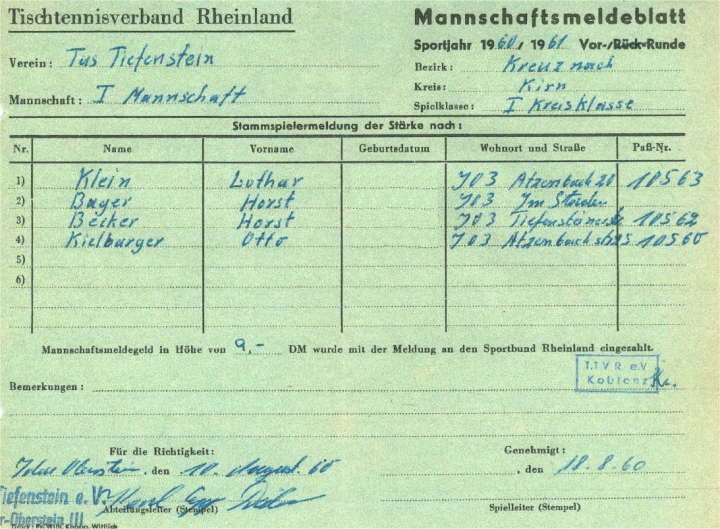 Tischtennisverband Rheinland
Mannschaftsmeldeblatt
Sportjahr 1960/1961 Vor-/Rück-Runde
Verein: Tus Tiefenstein
Bezirk: Kreuznach
Kreis: Kirn
Mannschaft: I Mannschaft
Spielklasse: I Kreisklasse
Stammspielermeldung der Stärke nach:
Nr. Name Vorname Geburtsdatum Wohnort und Straße Paß-Nr.
1) Klein Lothar JO3 Atzenbach 20 10563
2) Bayer Horst JO3 Im Städen
3) Becker Horst JO3 Tiefensteinerstr 10562
4) Kielburger Otto JO3 Atzenbachstr 10560
5)
6)
Mannschaftsmeldegeld in Höhe von 9,- DM wurde mit der Meldung an den Sportbund Rheinland eingezahlt.
T.T.V.R. e.V.
Koblenz
Bemerkungen:
Für die Richtigkeit:
Genehmigt:
Idar Oberstein, den 10. August. 60
, den 18.8.60
Tiefenstein e. V.
Abteilungsleiter (Stempel)
Spielleiter (Stempel)
r-Oberstein III